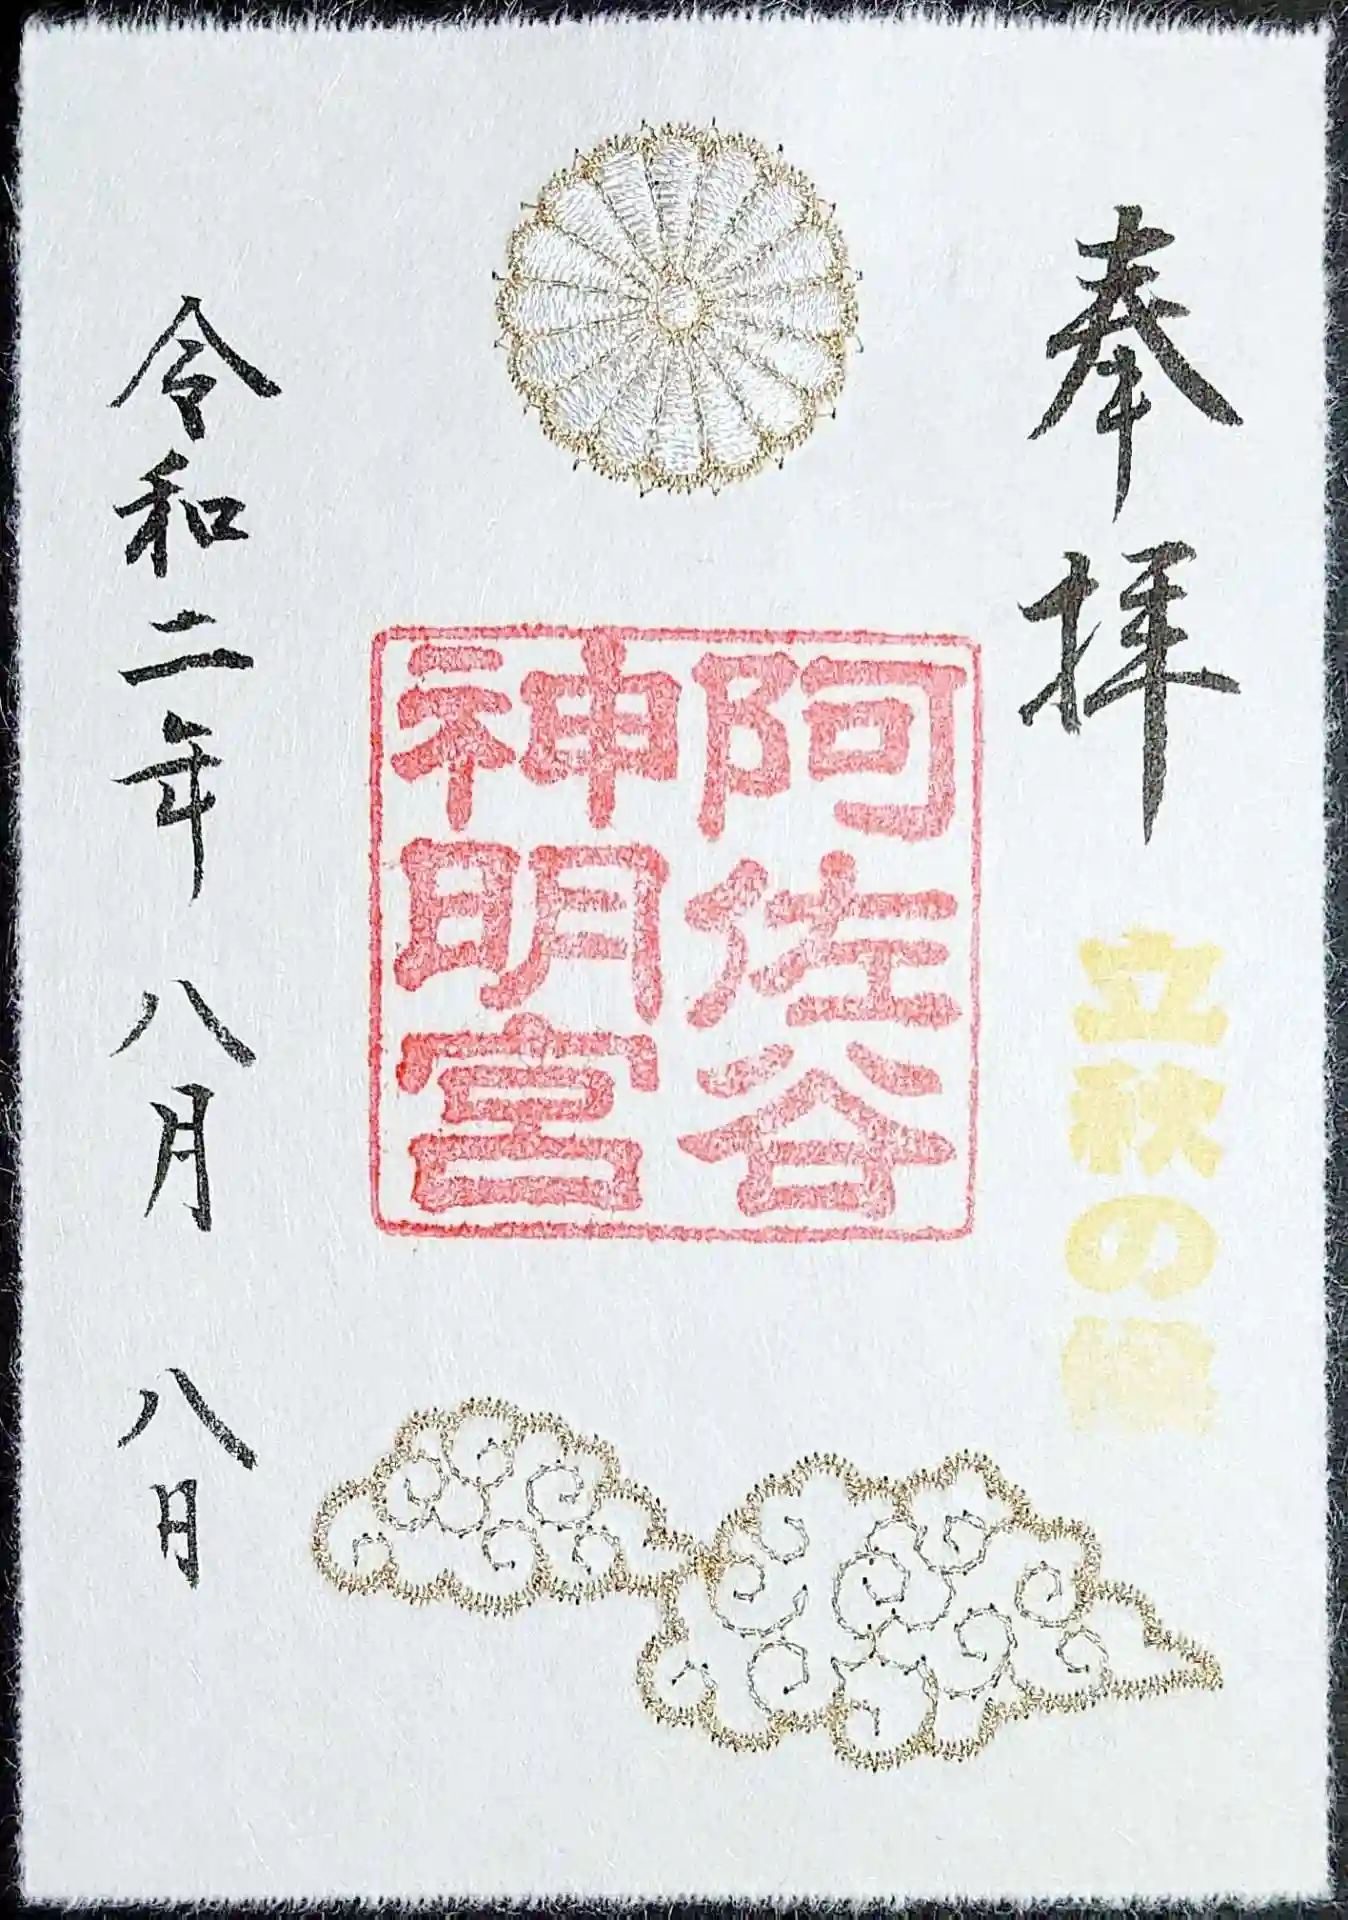 奉拝
立秋の
阿佐谷
神明宮
令和二年八月八日